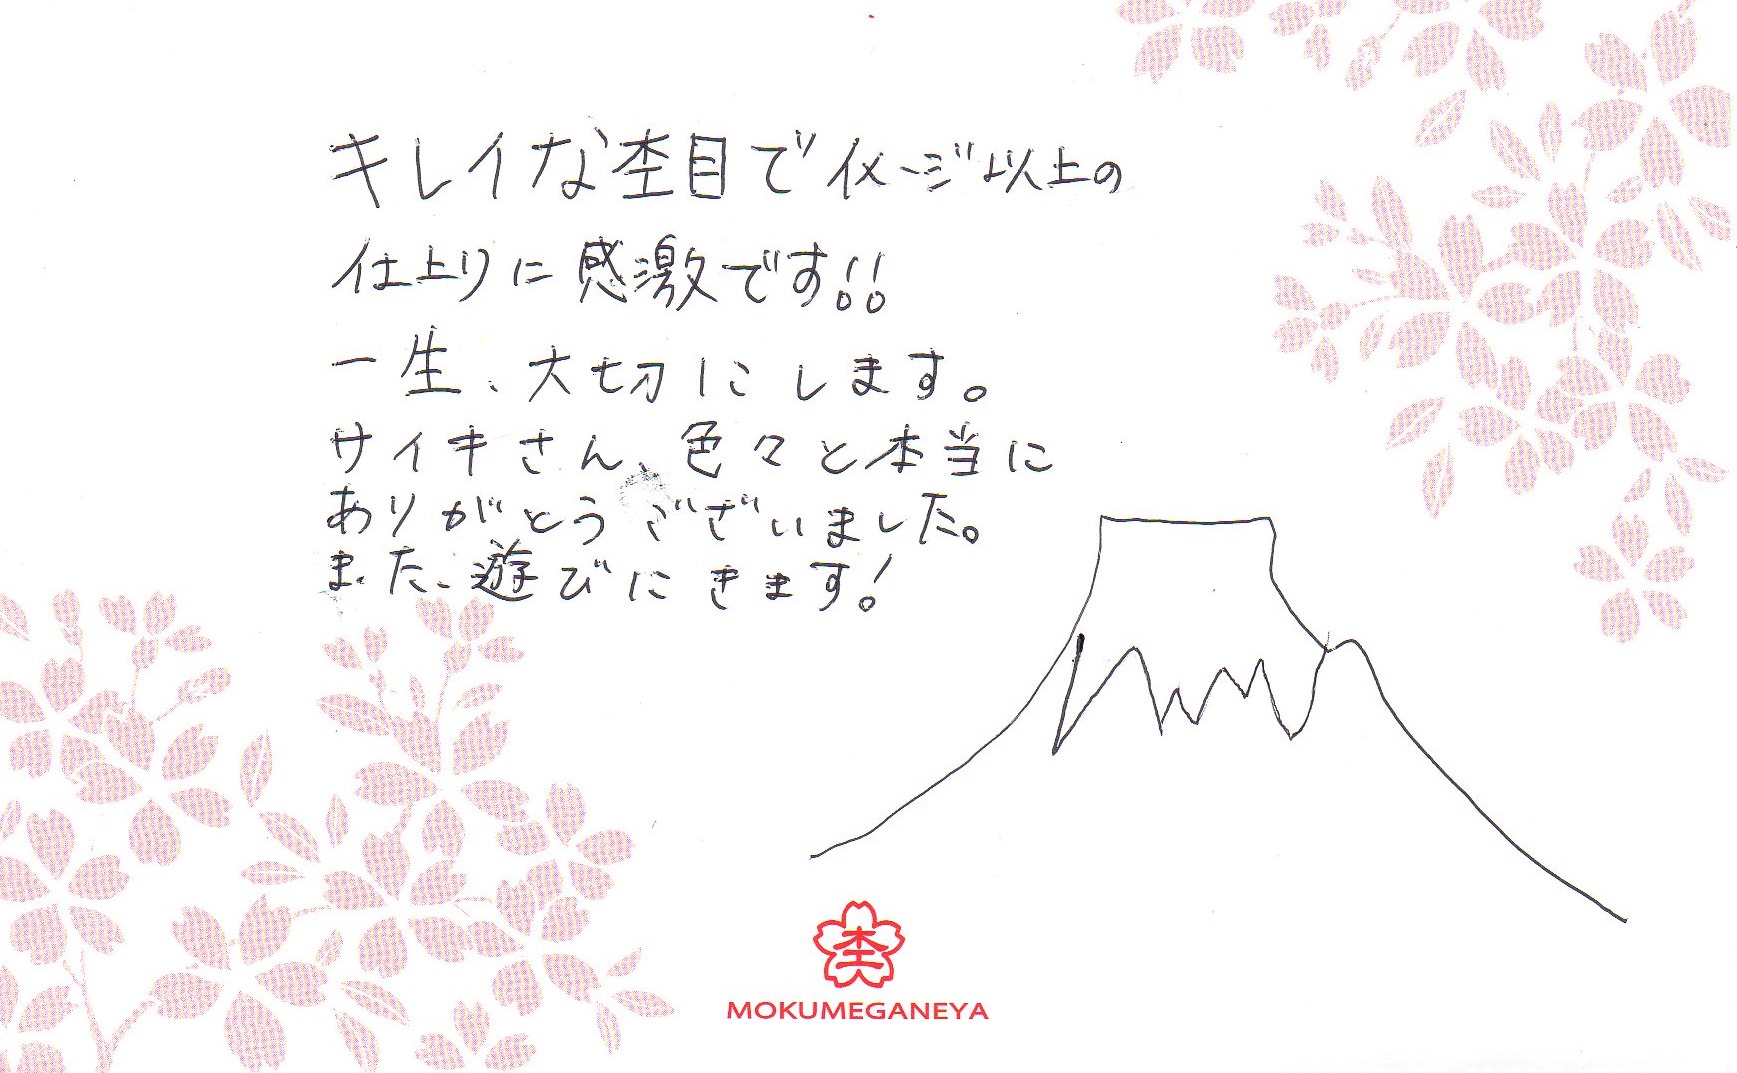 キレイな杢目でイメージ以上の
仕上りに感激です!!
一生、大切にします。
サイキさん、色々と本当に
ありがとうございました。
また、遊びにきます!
杢
MOKUMEGANEYA